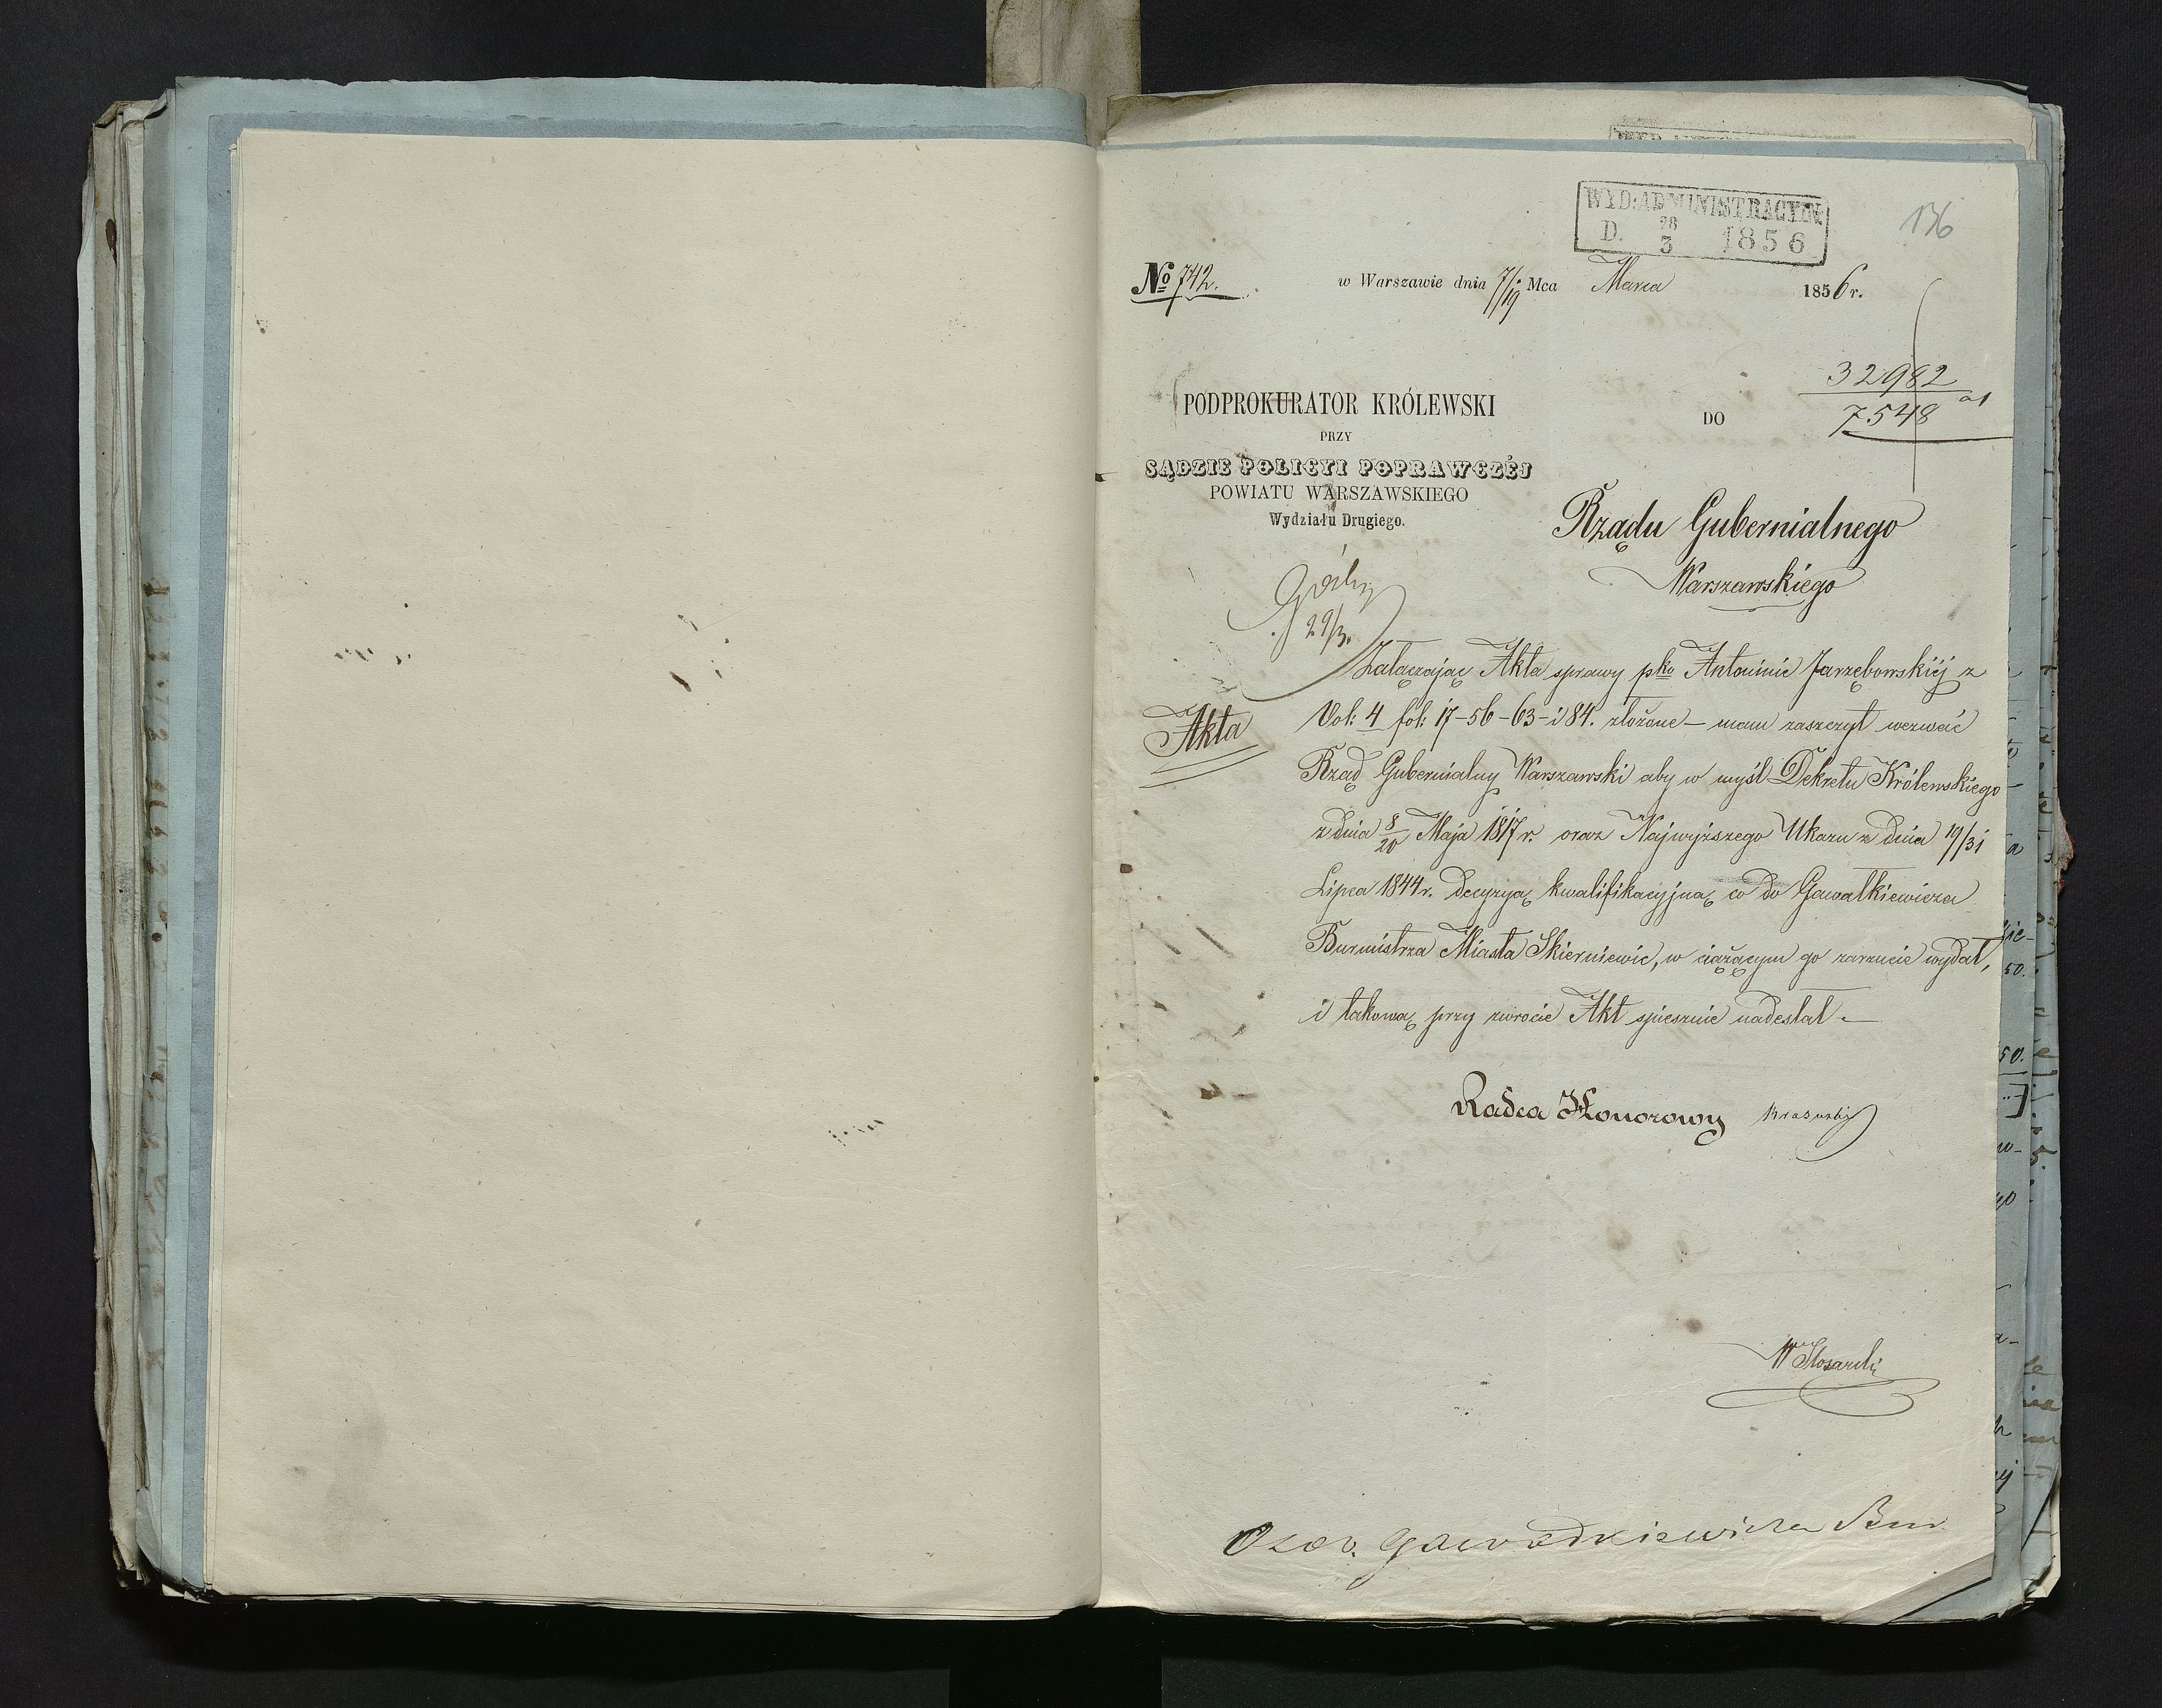 WYD: ADMINISTRACYJN
D. 28/3 1856
136
No 742. w Warszawie dnia 7/19 Mca Marca 1856 r.
32982
7548
PODPROKURATOR KRÓLEWSKI
DO
PRZY
SĄDZIE POLICYI POPRAWCZÉJ
POWIATU WARSZAWSKIEGO
Wydziału Drugiego.
Rządu Gubernialnego
Warszawskiego
29/3.
Załączając Akta sprawy pko Antoninie Jarzębowskiéj z
Akta
Vol: 4 fol: 17-56-63-i 84. złożone – mam zaszczyt wezwać
Rząd Gubernialny Warszawski aby w myśl Dekretu Królewskiego
z dnia 8/20 Maja 1817 r. oraz Najwyższego Ukazu z dnia 19/31
Lipca 1844 r. decyzyą kwalifikacyjną co do Gawatkiewicza
Burmistrza Miasta Skierniewic, w ciążącym go zarzucie wydał,
i takową przy zwrocie Akt spiesznie nadesłał –
Radca Honorowy
Gawadkiewicza Bur